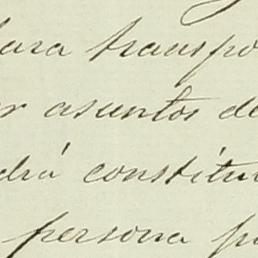 para transpo
r asuntos de
drá constitu
persona p